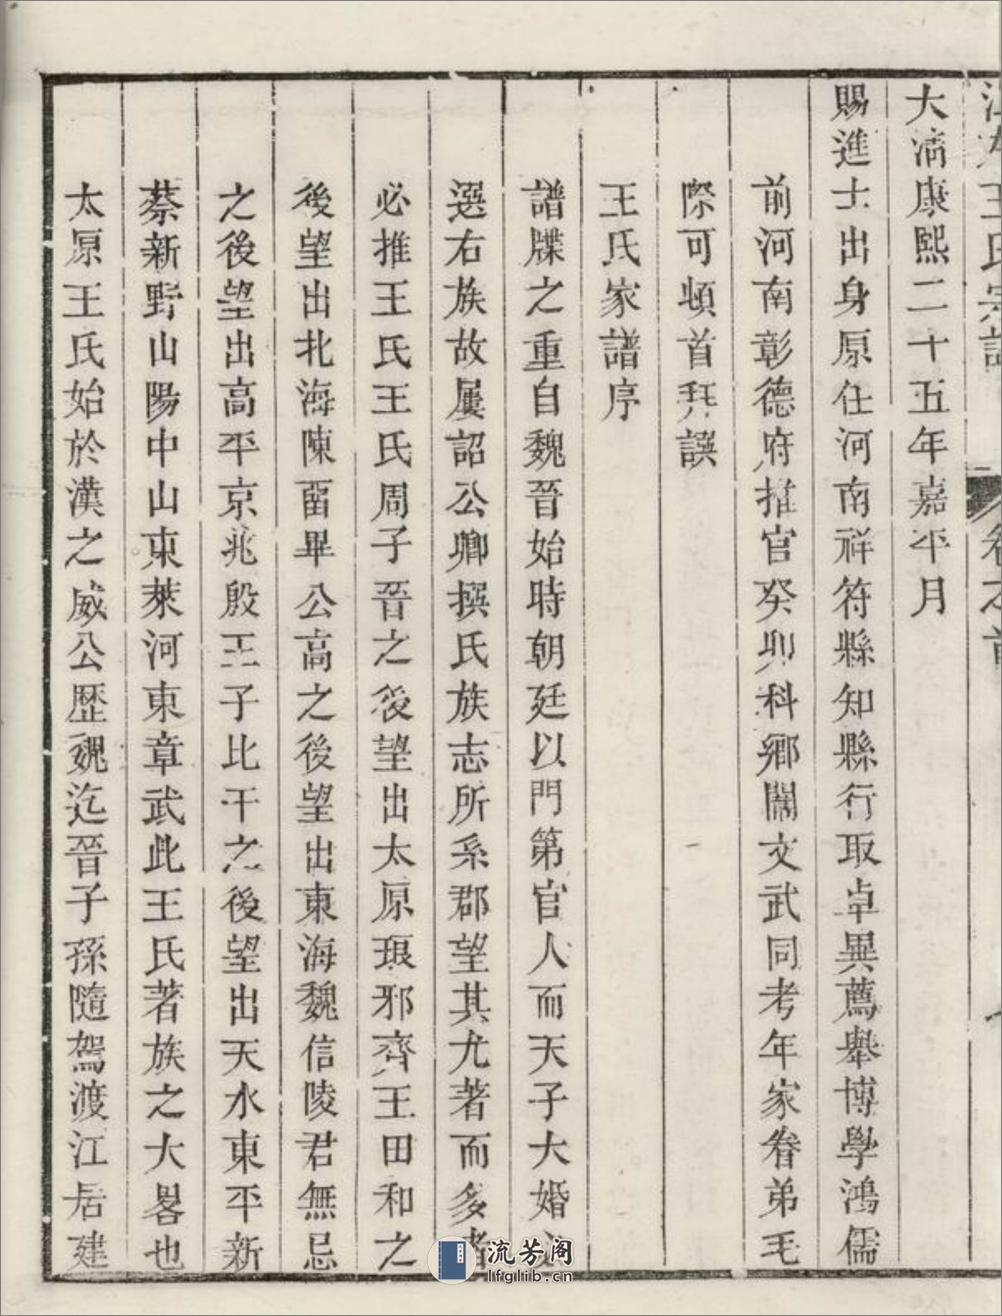 王氏宗譜
卷之首
大清康熙二十五年嘉平月
賜進士出身原任河南祥符縣知縣行取卓異薦舉博學鴻儒
前河南彰德府推官癸卯科鄉闈文武同考年家眷弟毛
際可頓首拜譔
王氏家譜序
譜牒之重自魏晉始時朝廷以門第官人而天子大婚
選右族故屢詔公卿撰氏族志所系郡望其尤著而多者
必推王氏王氏周子晉之後望出太原琅邪齊王田和之
後望出北海陳畱畢公高之後望出東海魏信陵君無忌
之後望出高平京兆殷王子比干之後望出天水東平新
蔡新野山陽中山東萊河東章武此王氏著族之大畧也
太原王氏始於漢之威公歷魏迄晉子孫隨駕渡江居建
流芳阁
lfglib.cn